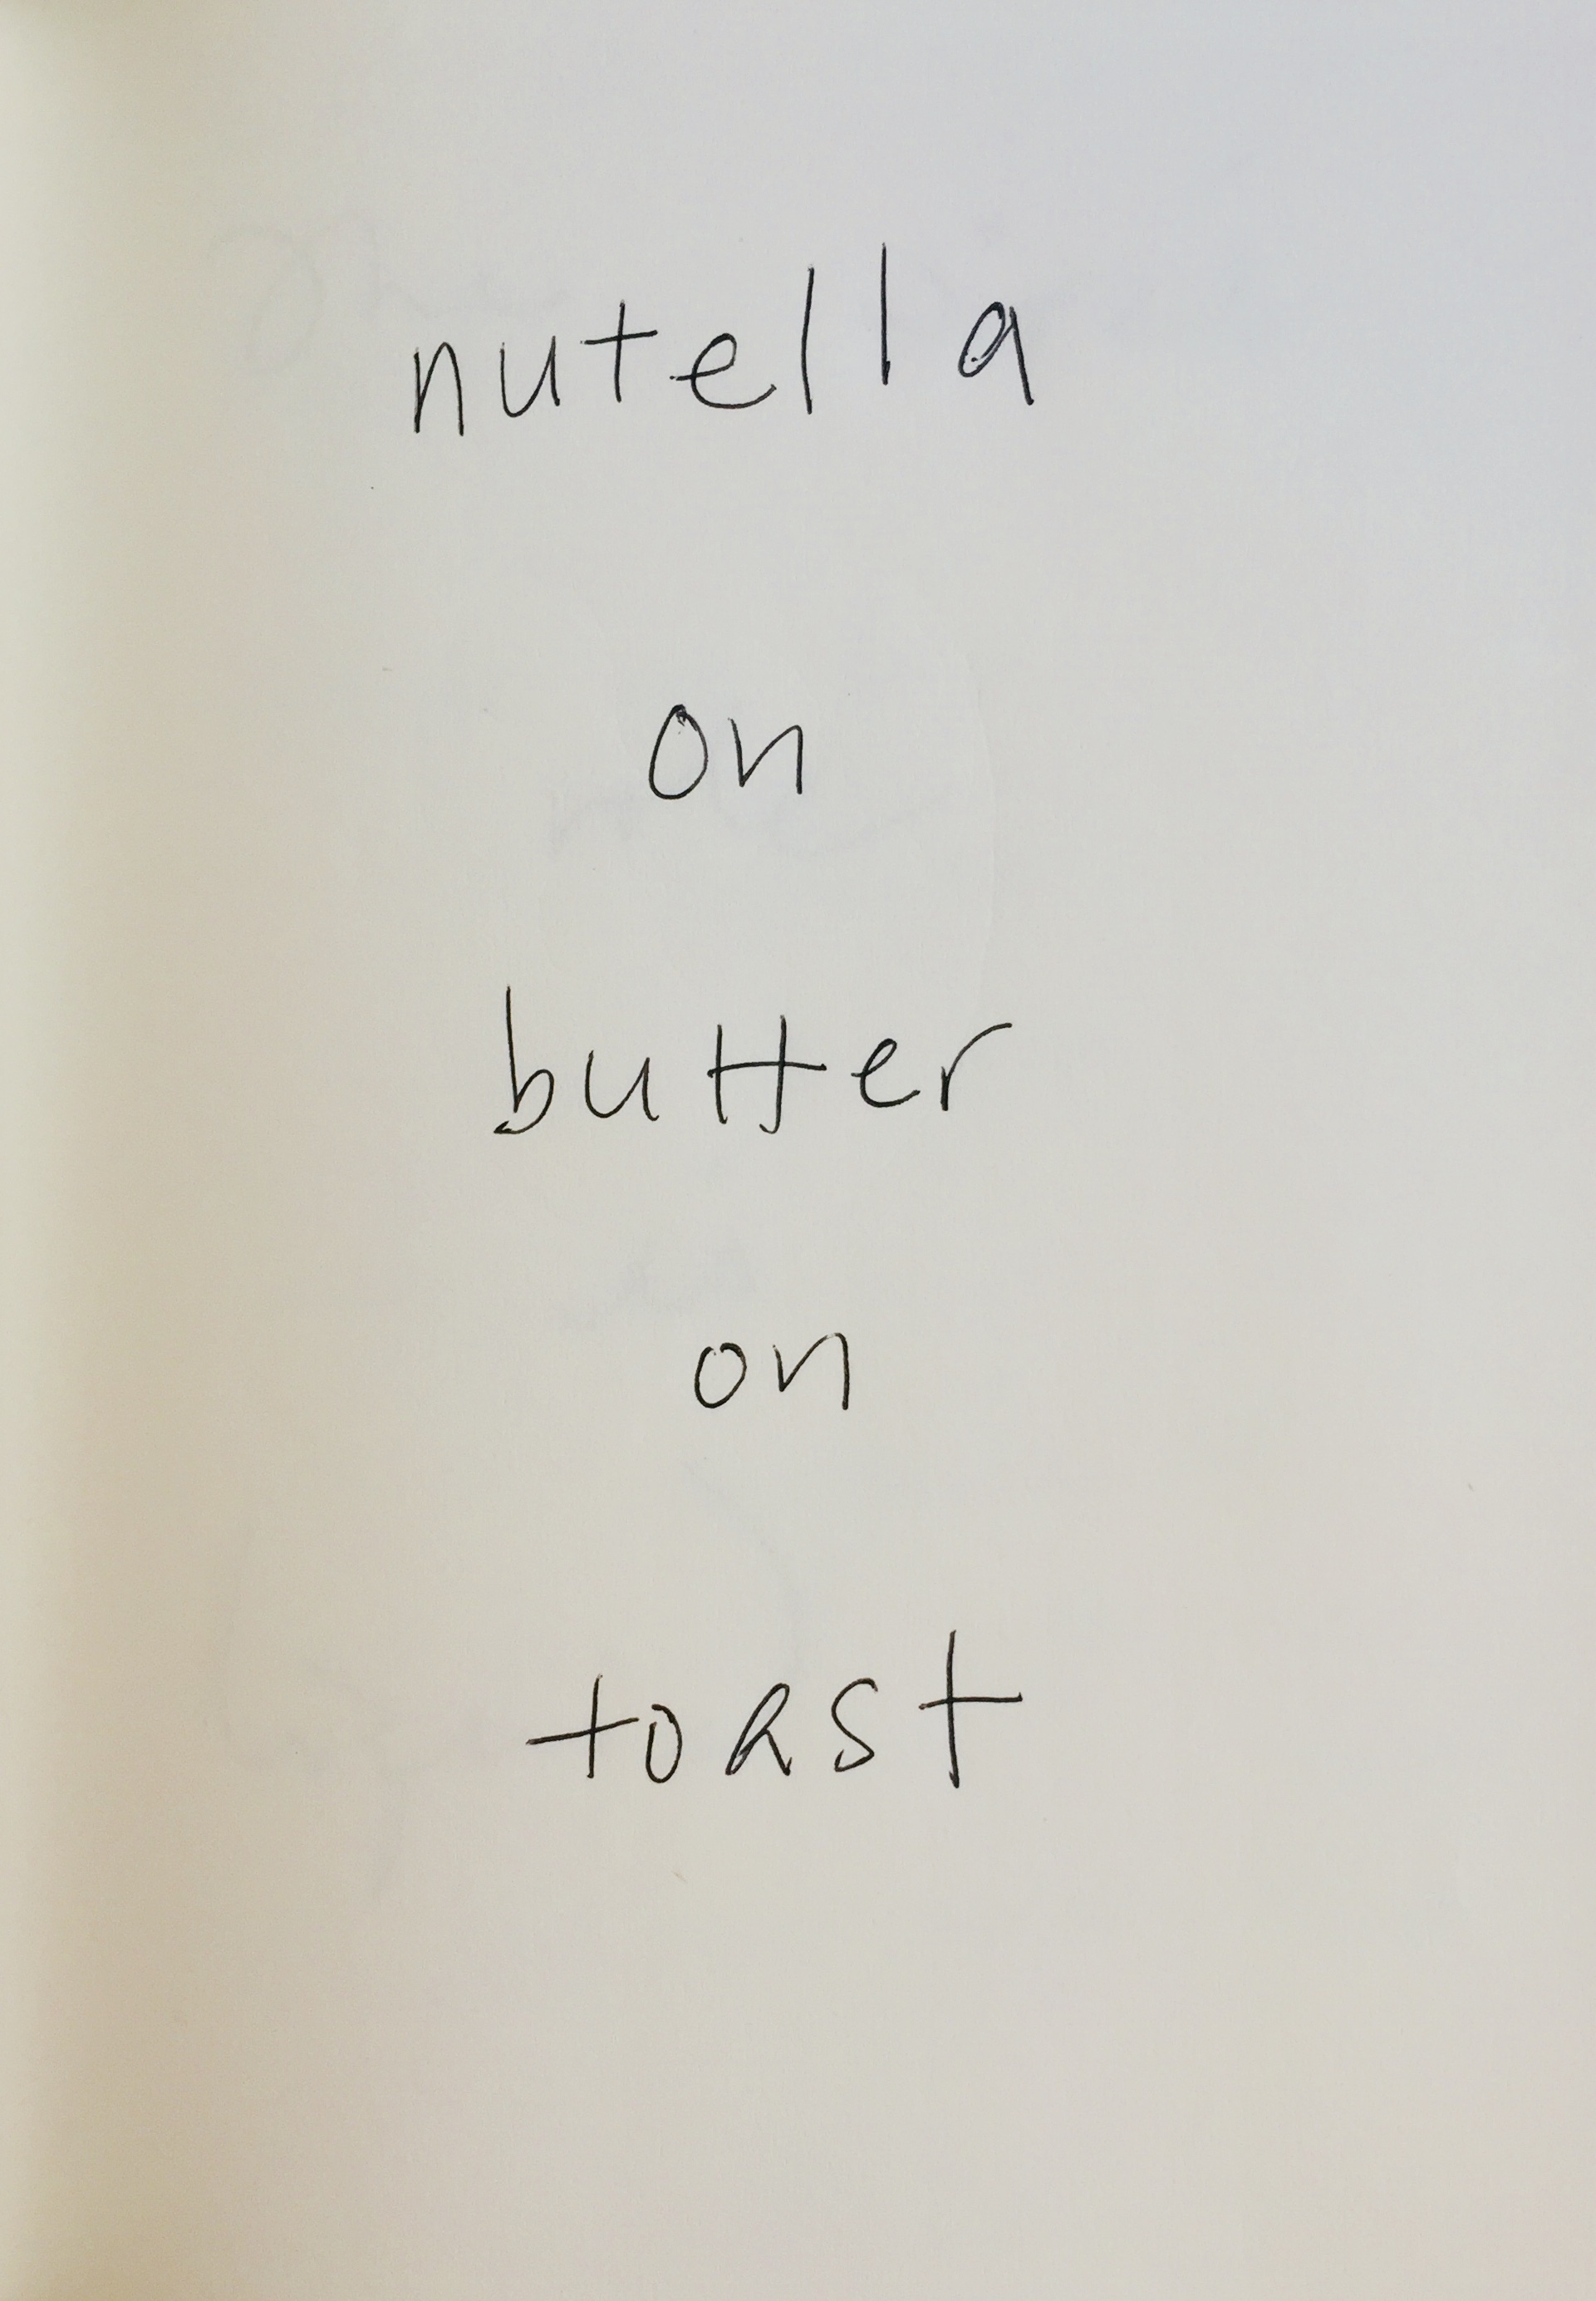 nutella
on
butter
on
toast